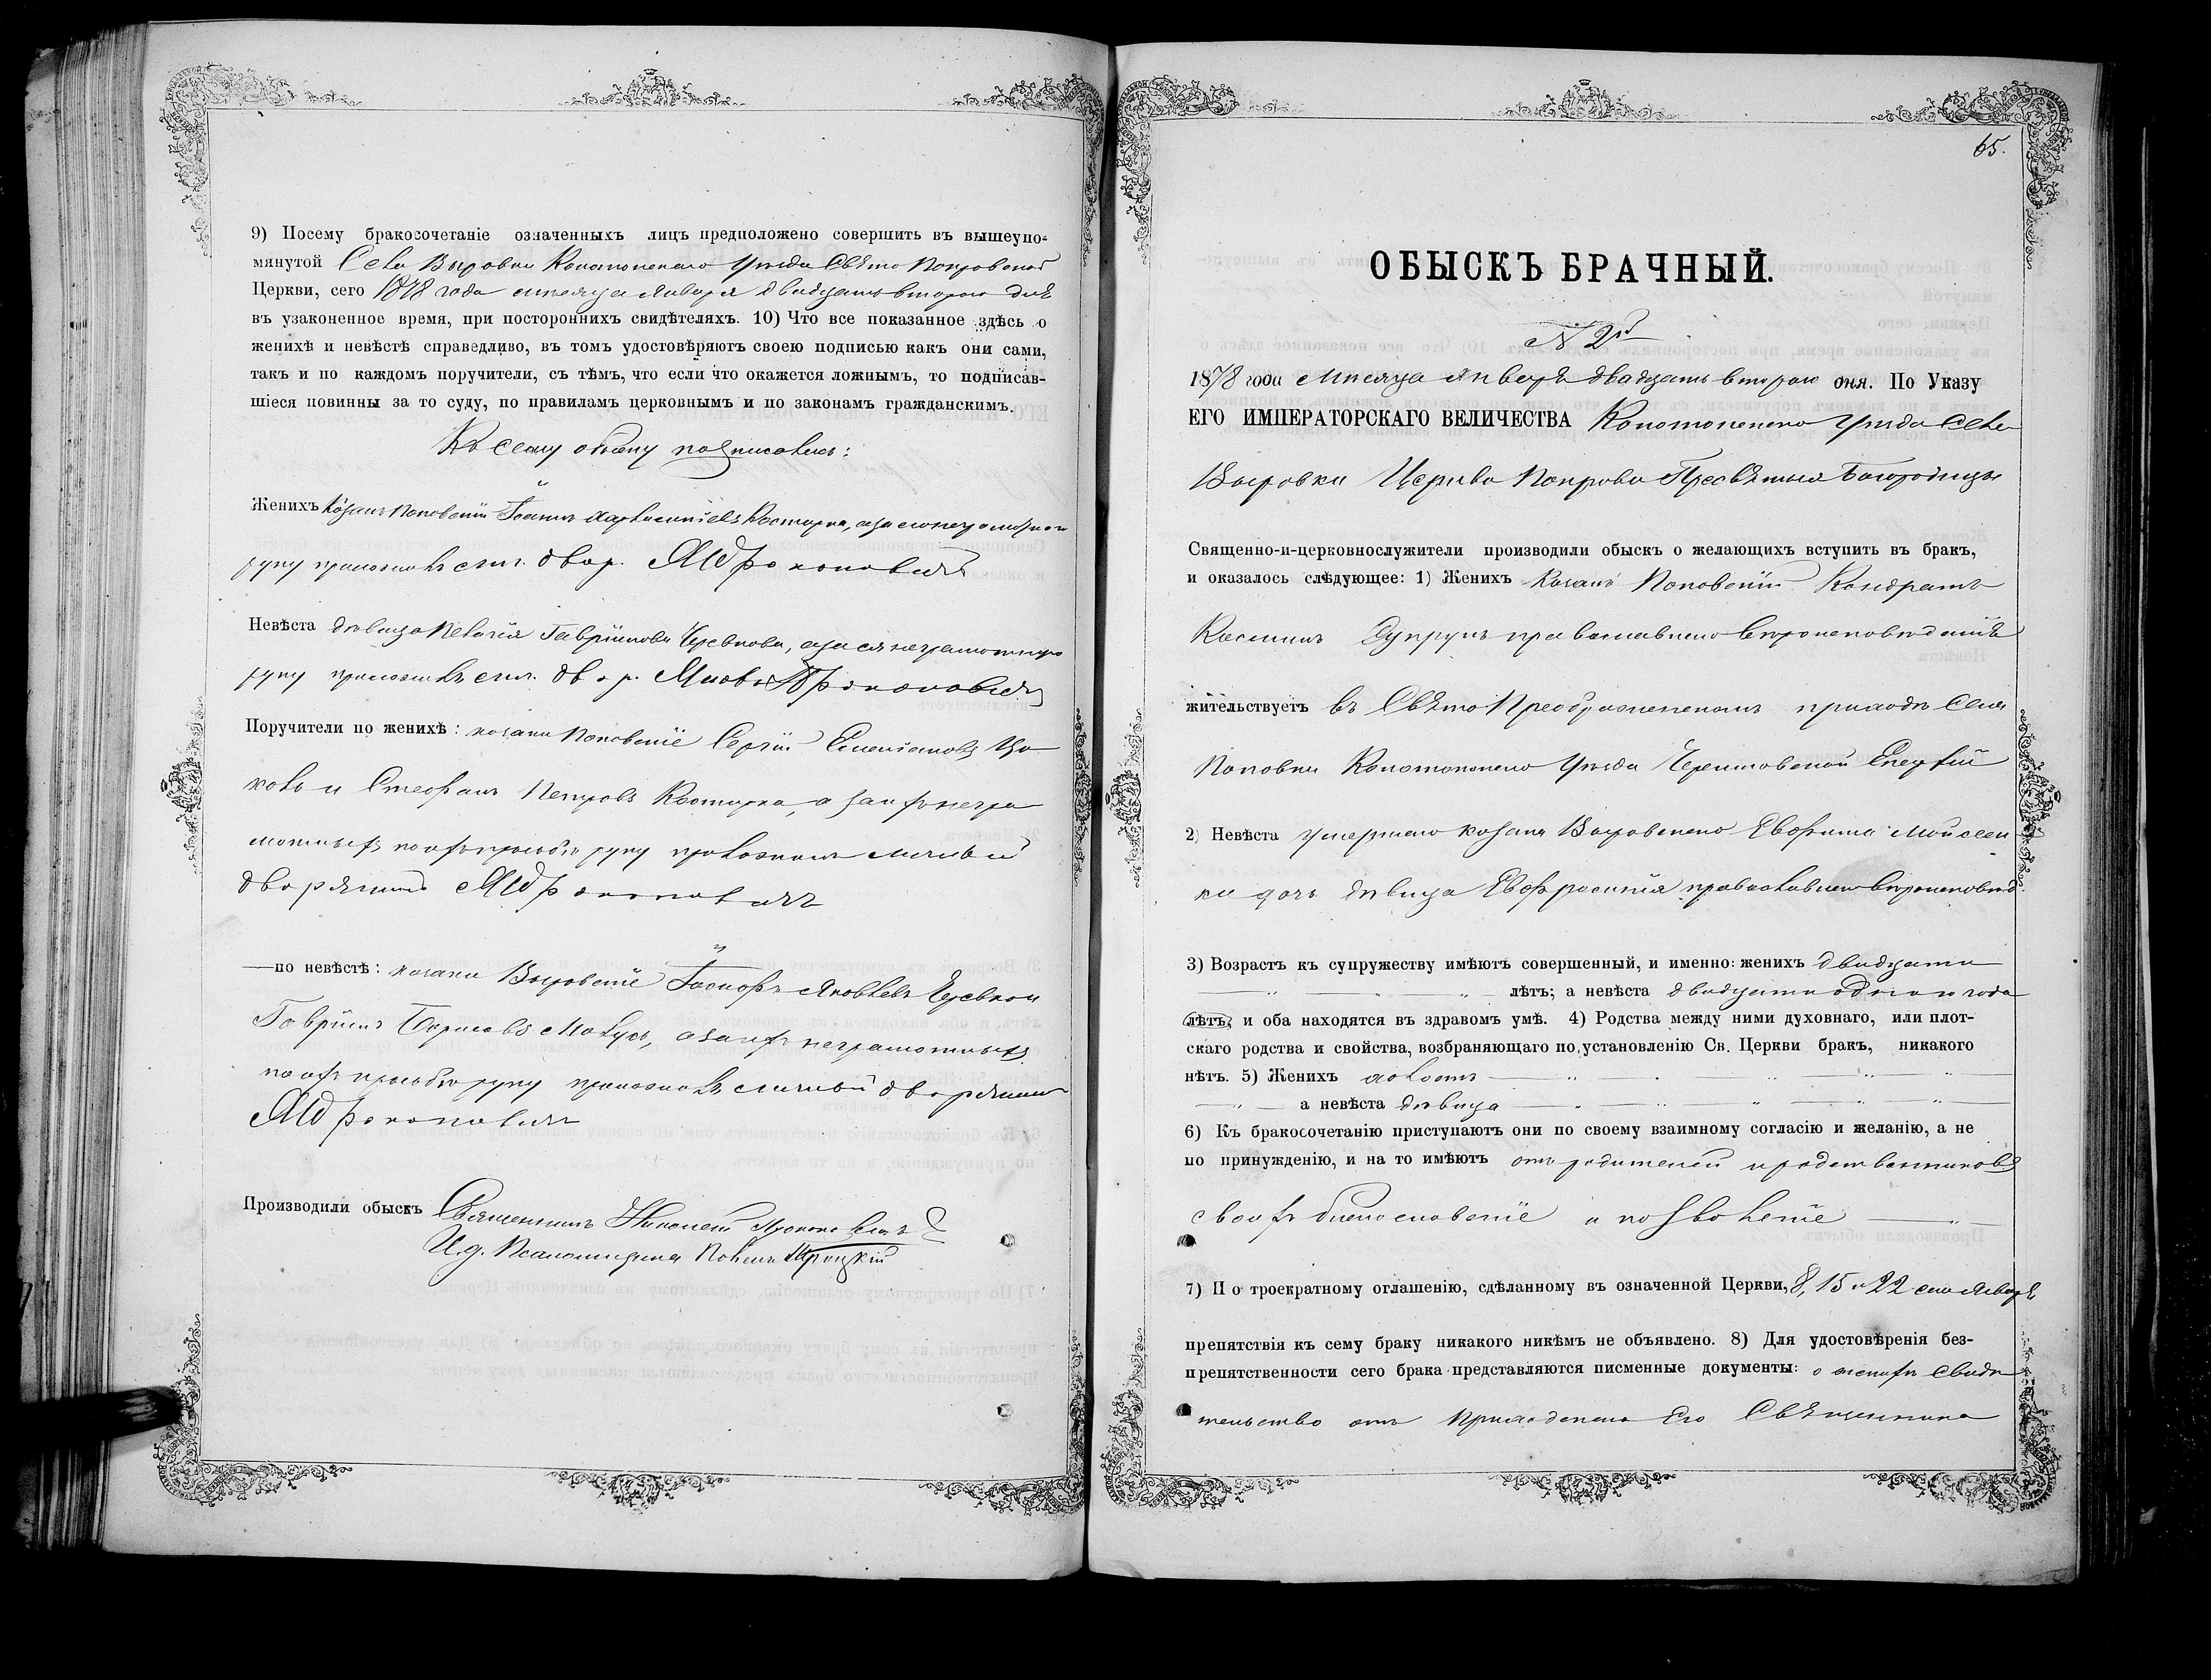 9) Посему бракосочетаніе означенныхъ лицъ предположено совершить въ вышеупо-
мянутой Села Выровки Конотопскаго Уѣзда Свято Покровской
Церкви, сего 1878 года мѣсяца Января двадцать второго дня
въ узаконенное время, при постороннихъ свидѣтеляхъ. 10) Что все показанное здѣсь о
женихѣ и невѣстѣ справедливо, въ томъ удостовѣряютъ своею подписью какъ они сами,
такъ и по каждомъ поручители, съ тѣмъ, что если что окажется ложнымъ, то подписав-
шіеся повинны за то суду, по правиламъ церковнымъ и по законамъ гражданскимъ.
Къ сему обыску подписались:
Женихъ Козакъ Поповскій Іоаннъ Костырка, а за его неграмотнаго
руку приложилъ двор. Прокоповичъ
Невѣста дѣвица Пелагія Гавріилова а за ея неграмотную
руку приложилъ двор. Яковъ Прокоповичъ
Поручители по женихѣ: козаки Поповскіе Сергій
и Стефанъ Петровъ Костырка, а за ихъ негра
мотныхъ по ихъ просьбѣ руку приложилъ
дворянинъ Прокоповичъ
—по невѣстѣ: козаки Выровскіе Іосифъ Яковлевъ
Гавріилъ Борисовъ а за ихъ неграмотныхъ
по ихъ просьбѣ руку приложилъ дворянинъ
Прокоповичъ
Производили обыскъ Священникъ Николай Прокоповичъ
И. д. Псаломщика Павелъ Троицкій
65.
ОБЫСКЪ БРАЧНЫЙ.
№ 2й
1878 года мѣсяца Января двадцать второго дня. По Указу
ЕГО ИМПЕРАТОРСКАГО ВЕЛИЧЕСТВА Конотопскаго Уѣзда Села
Выровки Церкви Покрова Пресвятыя Богородицы
Священно-и-церковнослужители производили обыскъ о желающихъ вступить въ бракъ,
и оказалось слѣдующее: 1) Женихъ Козакъ Поповскій Кондратъ
Косминъ Супрунъ православнаго вѣроисповѣданія
жительствуетъ въ Свято Преображенскомъ приходѣ Села
Поповки Конотопскаго Уѣзда Черниговской Епархіи
2) Невѣста умершаго козака Выровскаго Евфима Мойсеен
ки дочь дѣвица Евфросинія православнаго вѣроисповѣд.
3) Возрастъ къ супружеству имѣютъ совершенный, и именно: женихъ двадцати
лѣтъ; а невѣста двадцати одного года
лѣтъ, и оба находятся въ здравомъ умѣ. 4) Родства между ними духовнаго, или плот-
скаго родства и свойства, возбраняющаго по установленію Св. Церкви бракъ, никакого
нѣтъ. 5) Женихъ холостъ
а невѣста дѣвица
6) Къ бракосочетанію приступаютъ они по своему взаимному согласію и желанію, а не
по принужденію, и на то имѣютъ отъ родителей и родственниковъ
своихъ благословеніе и позволеніе
7) По троекратному оглашенію, сдѣланному въ означенной Церкви, 8, 15 и 22 сего Января
препятствія къ сему браку никакого никѣмъ не объявлено. 8) Для удостовѣренія без-
препятственности сего брака представляются писменные документы: о женихѣ свидѣ
тельство отъ Приходскаго Его Священника